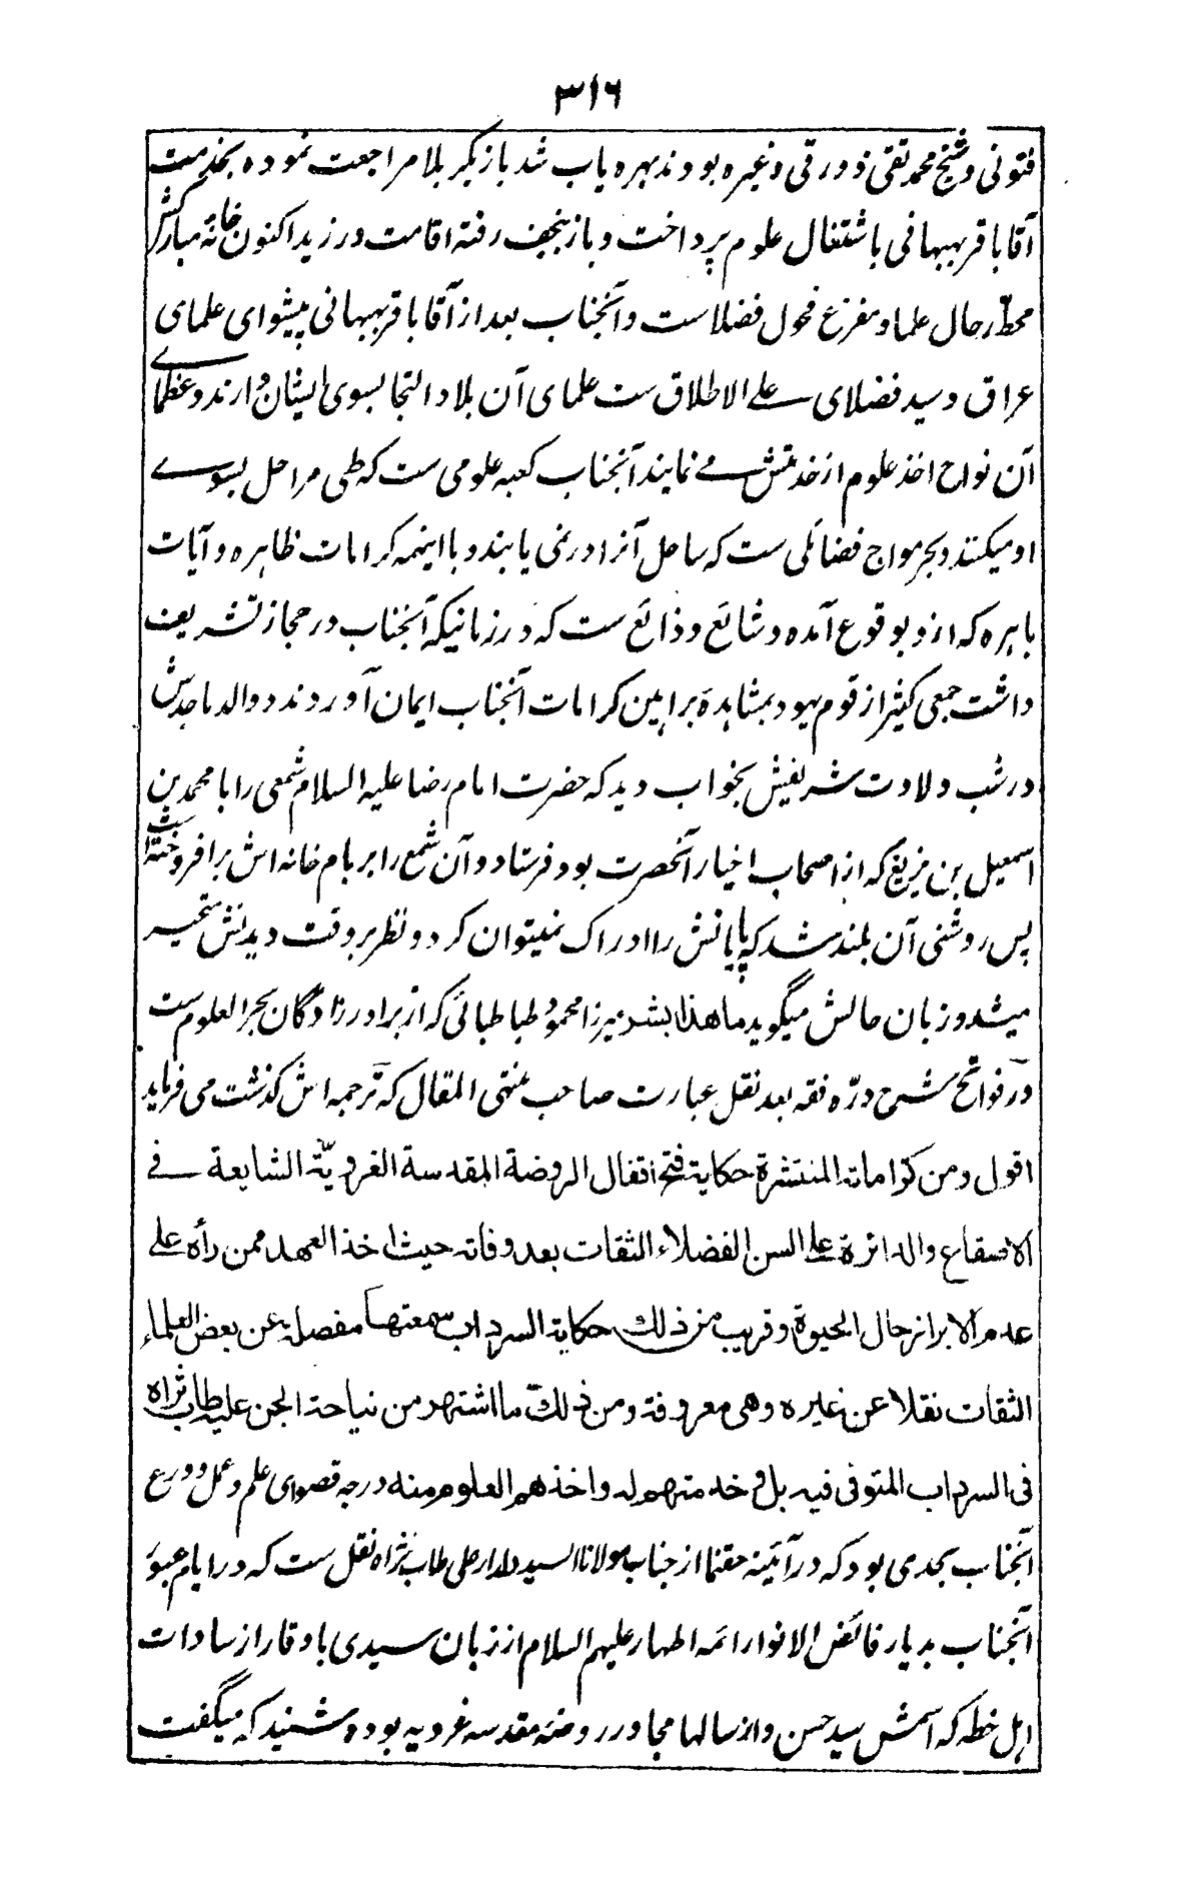 ۳۱۶
فتونی و شیخ محمد تقی ذورقی وغیره بودند بهره یاب شد باز بکربلا مراجعت نموده بخدمت
آقا باقر بهبهانی باشتغال علوم پرداخت و باز بنجف رفته اقامت ورزید اکنون خانهٔ مبارکش
محطّ رحال علما و مفزع فحول فضلاست و آنجناب بعد از آقا باقر بهبهانی پیشوای علمای
عراق و سید فضلای علی الاطلاق ست علمای آن بلاد التجا بسوی ایشان دارند و عظمای
آن نواح اخذ علوم از خدمتش می نمایند آنجناب کعبه علومی ست که طی مراحل بسوی
او میکنند و بحر مواج فضائلی ست که ساحل آنرا در نمی یابند و با اینهمه کرامات ظاهره و آیات
باهره که ازو بوقوع آمده و شائع و ذائع ست که در زمانیکه آنجناب در حجاز تشریف
داشت جمعی کثیر از قوم یهود بمشاهدهٔ براهین کرامات آنجناب ایمان آوردند و والد ماجدش
در شب ولادت شریفش بخواب دید که حضرت امام رضا علیه السلام شمعی را با محمد بن
اسمعیل بن بزیع که از اصحاب اخیار آنحضرت بود فرستاد و آن شمع را بر بام خانه اش برافروخته است
پس روشنی آن بلند شد که پایانش را ادراک نمیتوان کرد و نظر بروقت دیدنش متحیر
میشد و زبان حالش میگوید ما هذا بشر میرزا محمود طباطبائی که از برادرزادگان بحر العلوم ست
در فواتح شرح درّه فقه بعد نقل عبارت صاحب منتهی المقال که ترجمه اش گذشت می فرماید
اقول ومن کراماته المنتشرة حکایة فتح اقفال الروضة المقدسة الغرویّة الشایعة فی
الاصقاع والدائرة علی السن الفضلاء الثقات بعد وفاته حیث اخذ العهد ممن رأه علی
عدم الابراز حال الحیوة وقریب من ذلک حکایة السرداب سمعتها مفصلة عن بعض العلماء
الثقات نقلا عن غیره وهی معروفة ومن ذلک ما اشتهر من نیاحة الجن علیه طاب ثراه
فی السرداب المتوفی فیه بل فی خدمتهم له واخذهم العلوم منه درجه قصوای علم و عمل و ورع
آنجناب بحدی بود که در آئینه حقنما از جناب مولانا السید دلدار علی طاب ثراه نقل ست که در ایام عبور
آنجناب بدیار فائض الانوار ائمه اطهار علیهم السلام از زبان سیدی باوقار از سادات
اهل خطه که اسمش سید حسن و از سالها مجاور روضهٔ مقدسه غرویه بوده شنید که میگفت